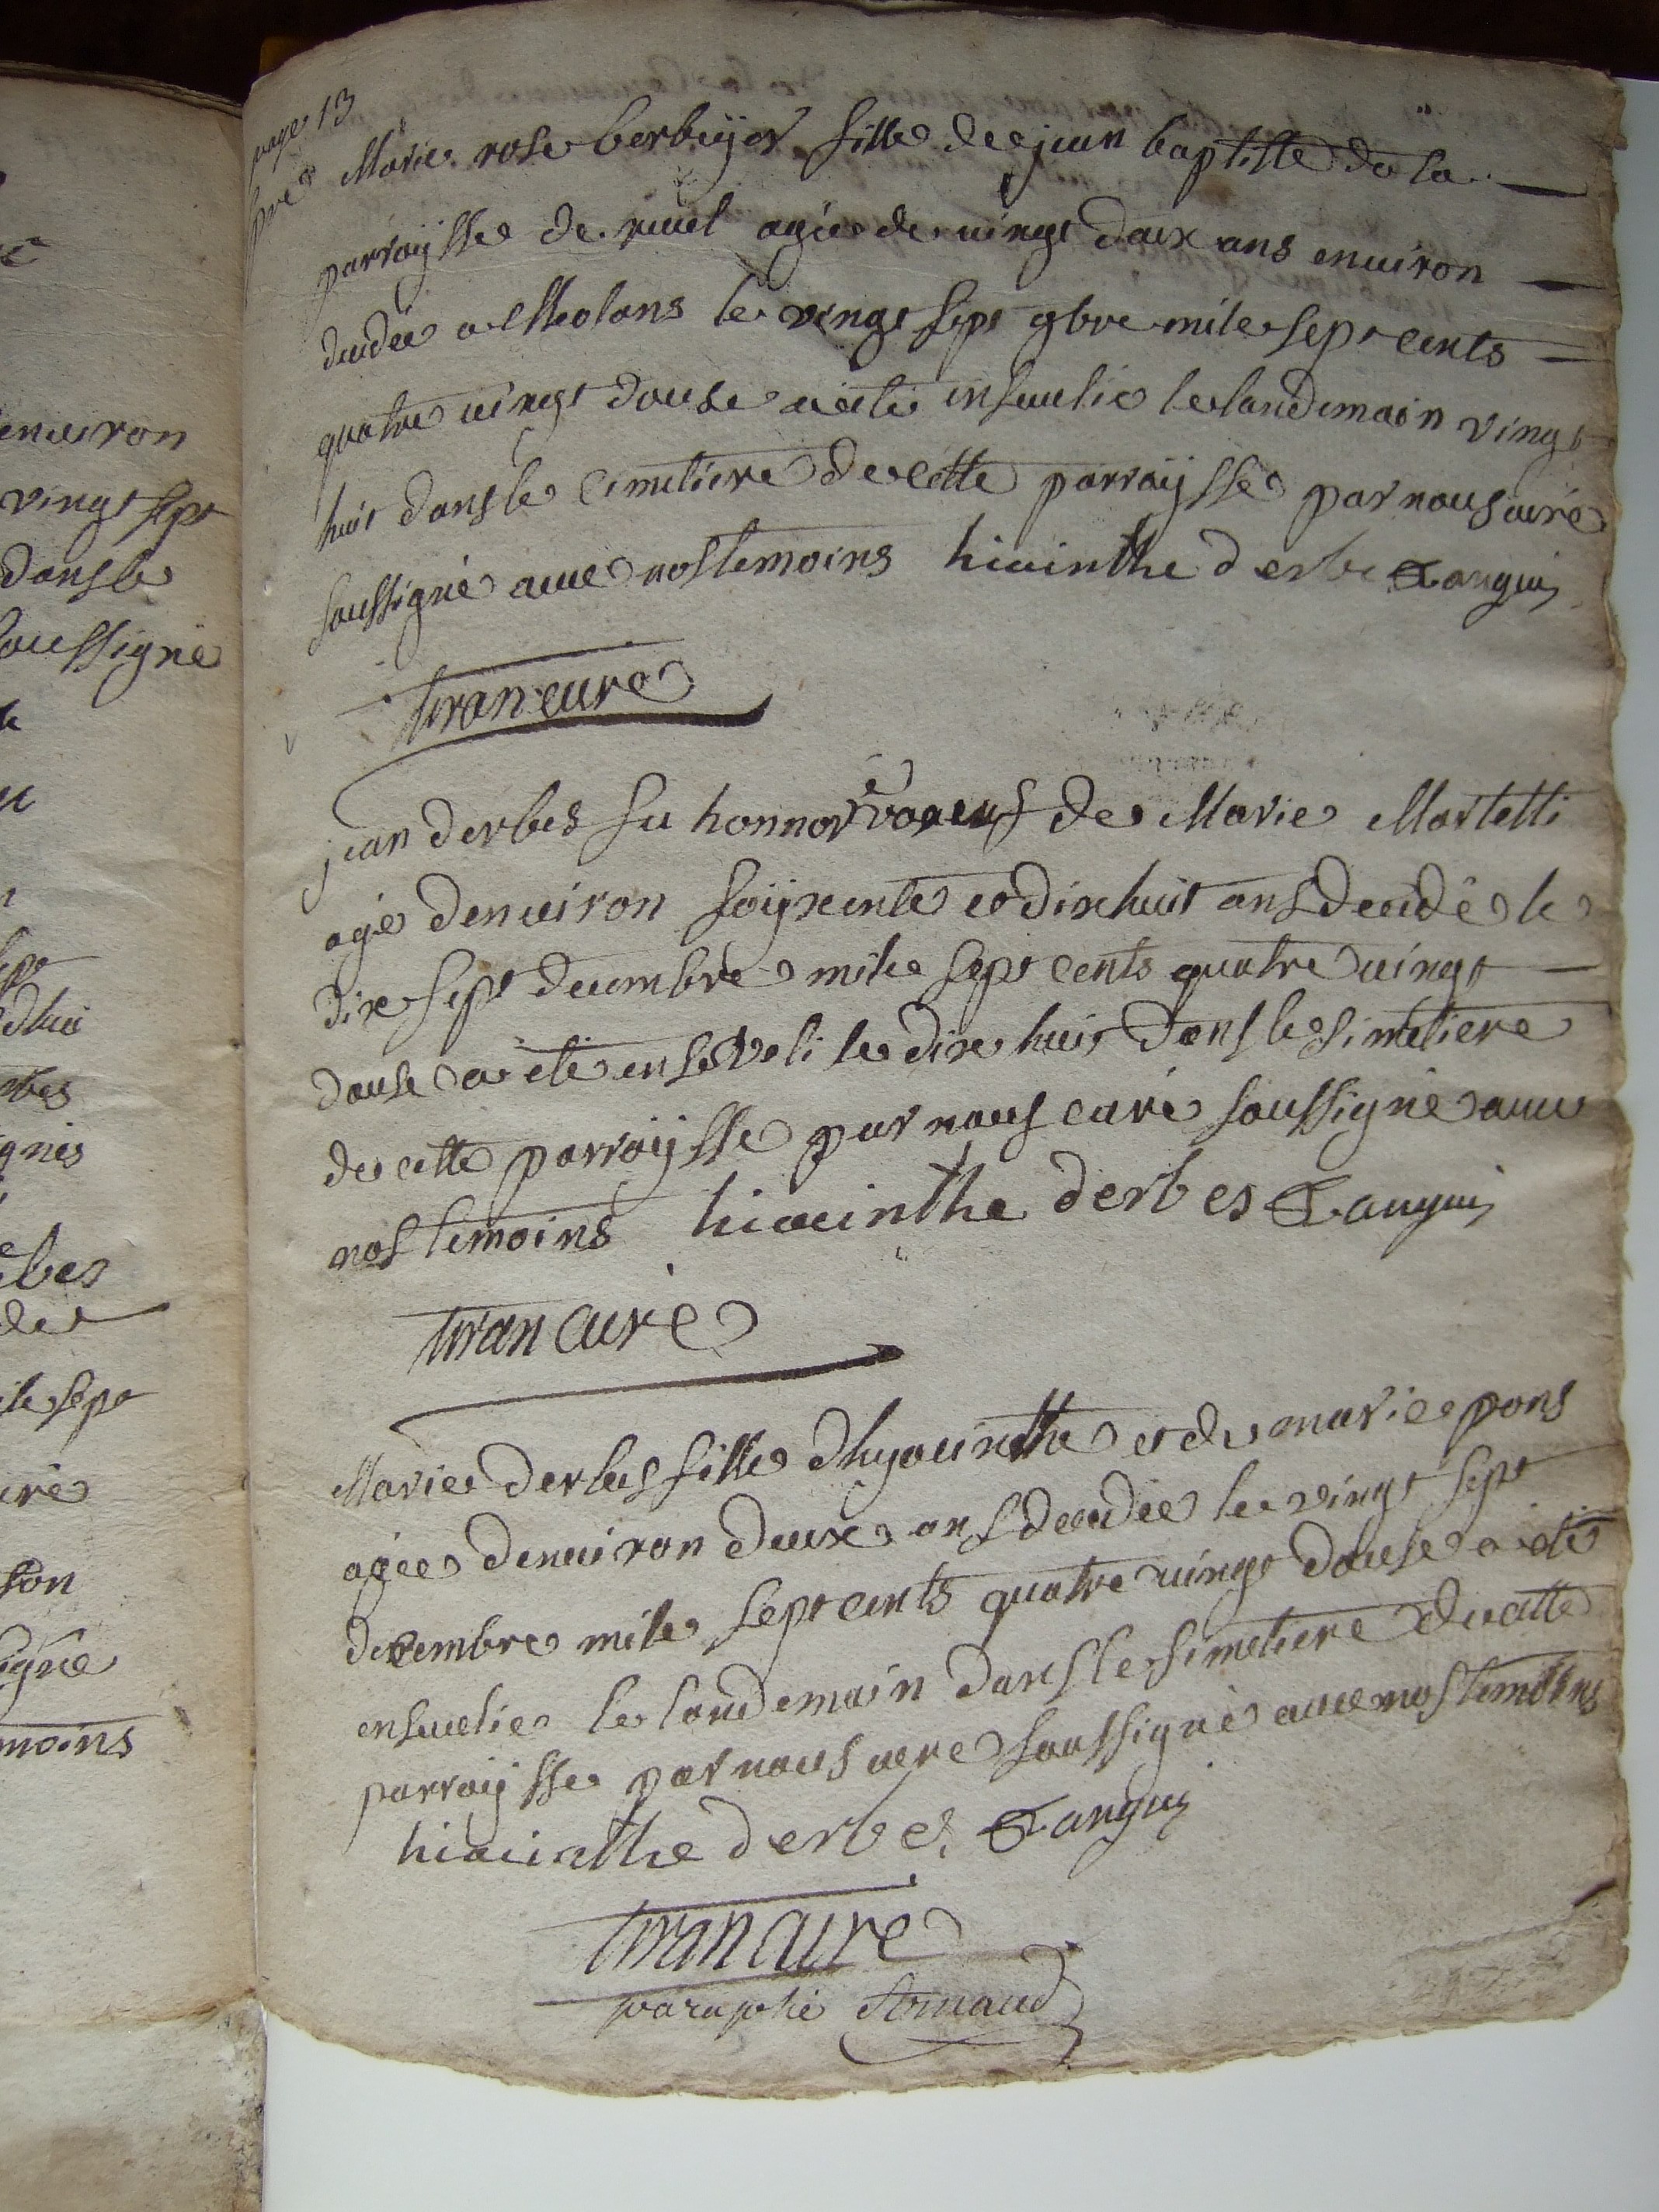 page 13
Marie rose berbeÿer fille de jean baptiste de la
parroÿsse de revel agée de vingt deux ans environ
decedée a Meolans le vingt sept 9bre mile sept cents
quatre vingt douse a eté ensevelie le landemain vingt
huit dans le cimetiere de cette parroÿsse par nous curé
soussigné avec nos temoins hiacinthe derbes
tiran curé
jean derbes fu honnoré de Marie Martelli
agé denviron soÿxente et dix huit ans decedé le
dix sept decembre mile sept cents quatre vingt
douse a eté enseveli le dix huit dans le simetiere
de cette parroÿsse par nous curé soussigné avec
nos temoins hiacinthe derbes
tiran curé
Marie derbes fille dhyacinthe et de marie pons
agée denviron deux ans decedée le vingt sept
decembre mile sept cents quatre vingt douse a eté
ensevelie le landemain dans le simetiere de cette
parroÿsse par nous curé soussigné avec nos temoins
hiacinthe derbes
tiran curé
paraphé Arnaud
environ
vingt sept
dans le
soussigné
dhui
gnés
bes
ile sept
uré
son
igné
moins